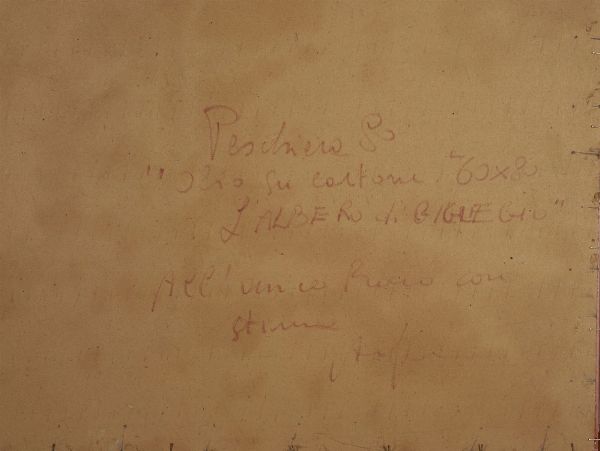 Peschiera 80
"Olio su cartone "60x80
L'ALBERO di
All'amico con
stima